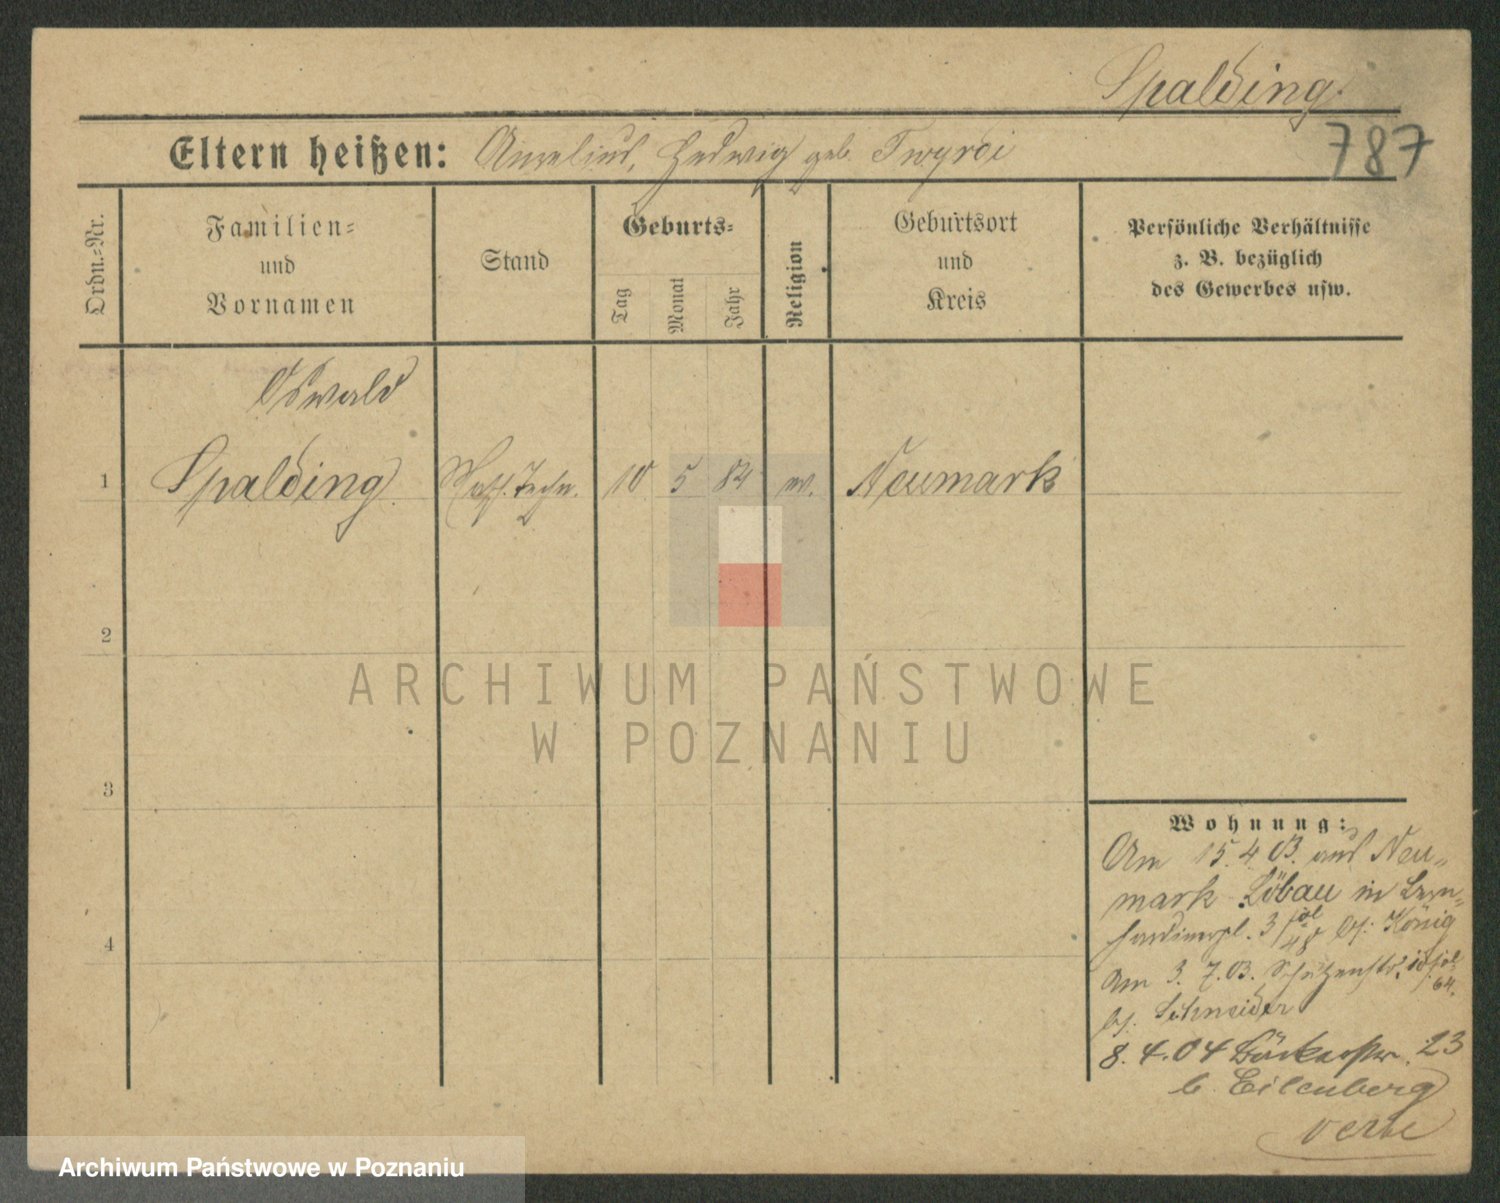 Spalding.
787
Eltern heißen: Aurelius, Hedwig geb. Twyroi
Ordn.-Nr.
Familien- und Vornamen
Stand
Geburts-
Tag
Monat
Jahr
Religion
Geburtsort und Kreis
Persönliche Verhältnisse
z. B. bezüglich
des Gewerbes usw.
Oswald
1 Spalding. Techn. 10 5 84 Neumark
2
3
4
Wohnung:
Am 15.4.03. aus Neu-
mark Löbau in Bern-
hardinerpl. 3 bei König
Am 3. 7. 03. Schützenstr. 64.
bei Schneider
8. 4. 04 Bäckerstr. 23
b. Eilenberg
ARCHIWUM PAŃSTWOWE
W POZNANIU
Archiwum Państwowe w Poznaniu